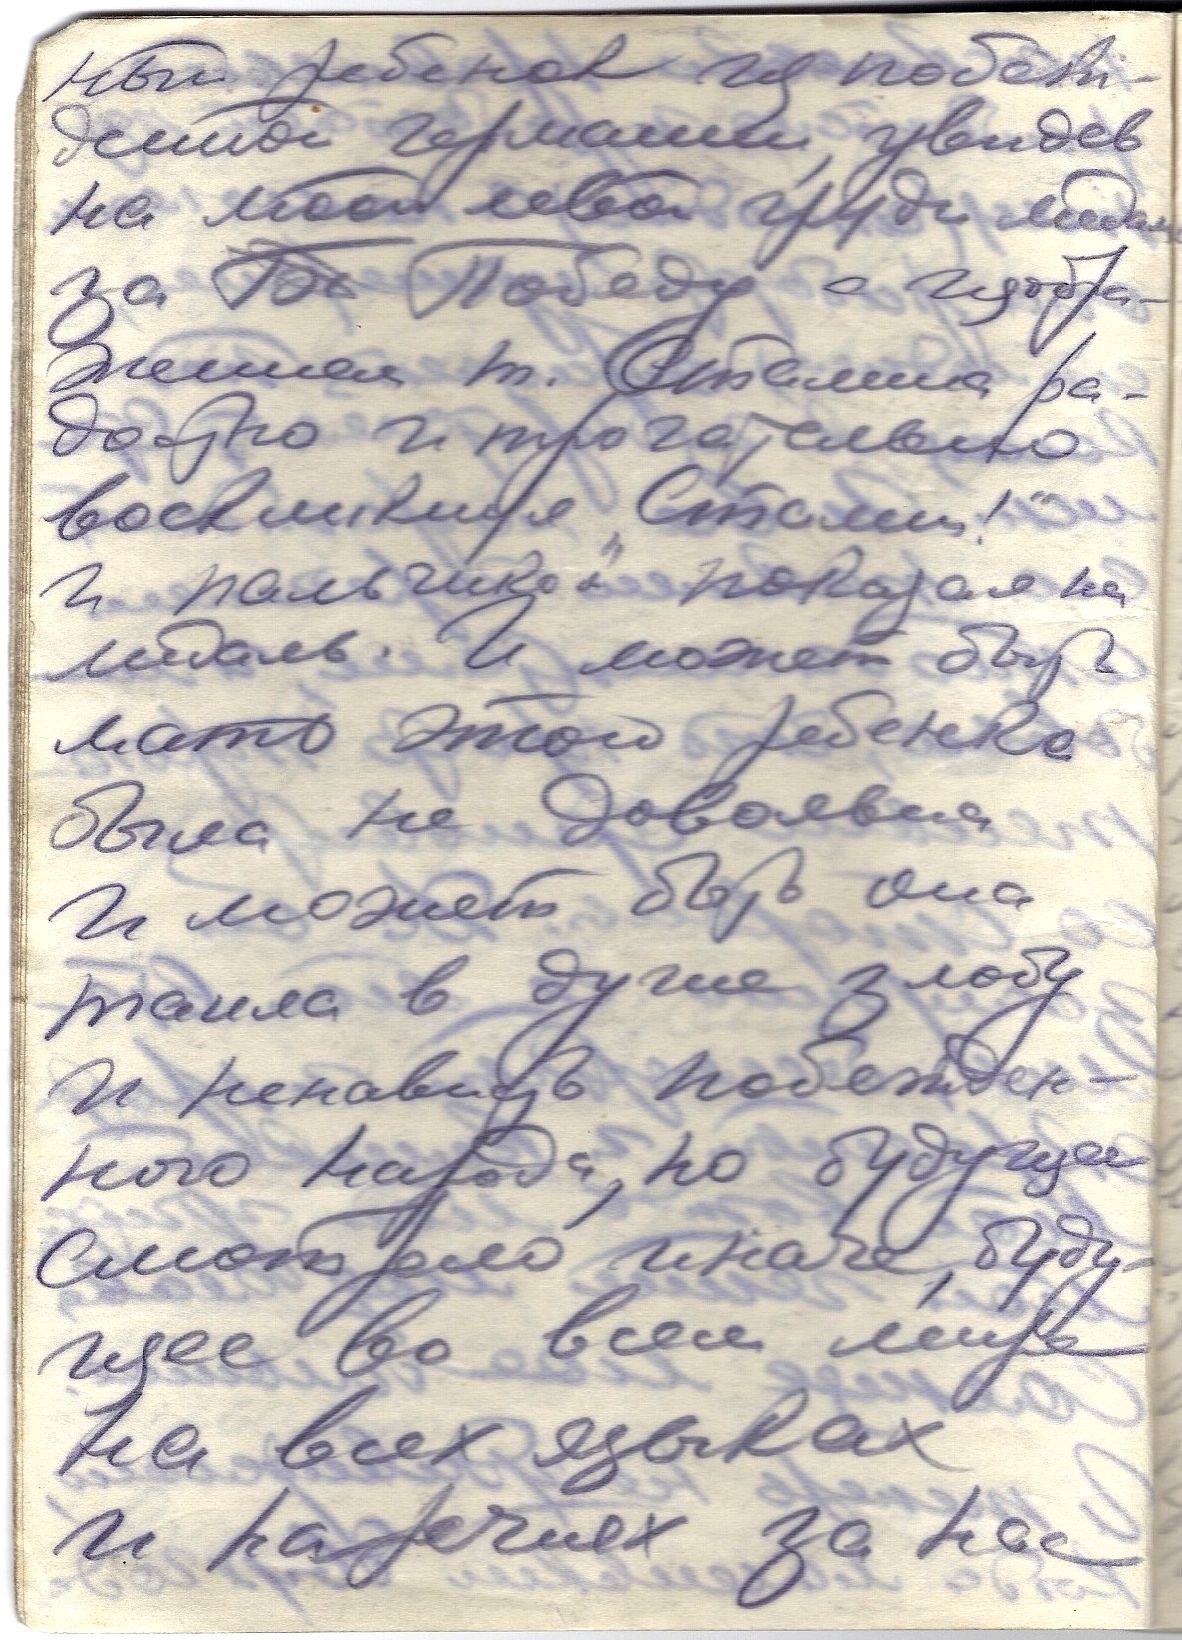 ный ребенок из побеж-
денной германии, увидев
на моей левой груди медаль
за Победу с изобра-
жением т. Сталина ра-
достно и трогательно
воскликнул „Сталин!"
и пальчиком показал на
медаль. И может быть
мать этого ребенка
была не довольна
и может быть она
таила в душе злобу
и ненависть побежден-
ного народа, но будущее
смотрело иначе, буду-
щее во всем мире
на всех языках
и наречиях за нас